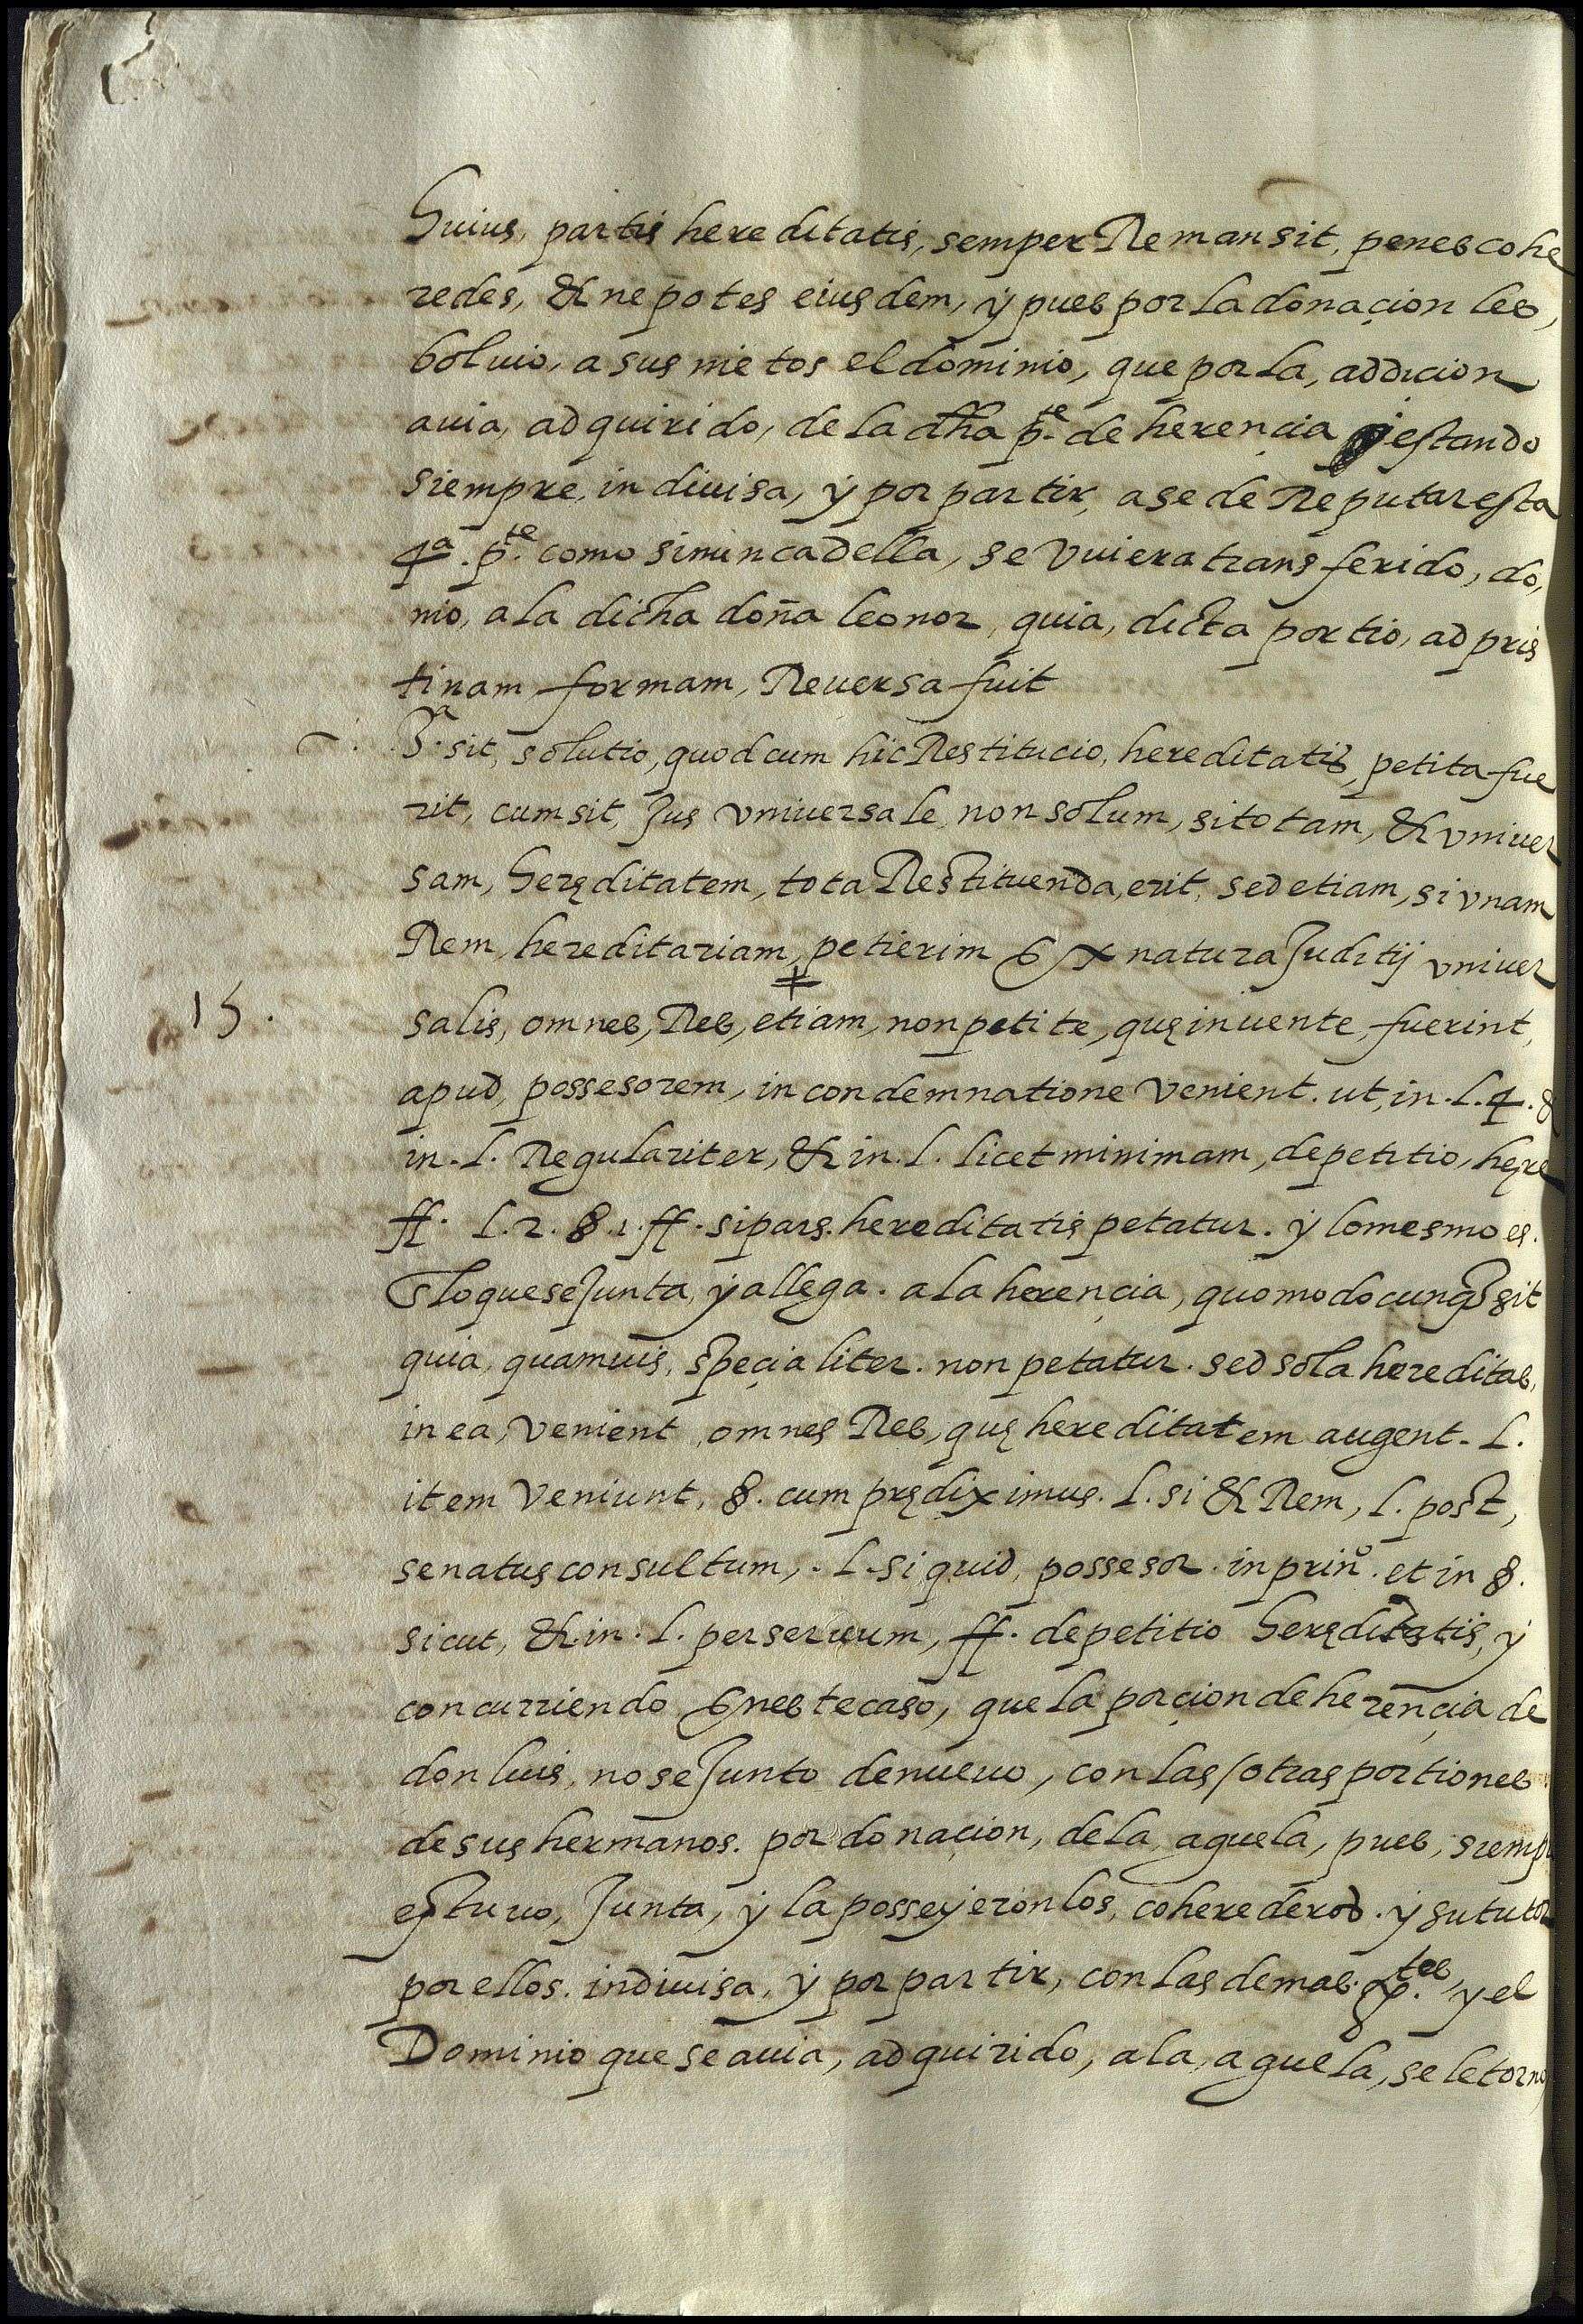 huius, partis hereditatis, semper Remansit, penes cohe
redes, & nepotes eiusdem, y pues por la donaçion les,
boluio, a sus nietos el dominio, que por la, addicion
auia, adquirido, de la dha p.te de herençia y estando
siempre, indiuisa, y por partir, a se de Reputar esta
4a. p.te como si nunca della, se vuiera transferido, do,
nio, a la dicha doña leonor, quia, dicta portio, ad pris
tinam formam, Reuersa fuit
3.a sit, solutio, quod cum hic Restitucio, hereditatis, petita fue
rit, cum sit, Jus vniuersale, non solum, si totam, & vniuer
sam, heręditatem, tota Restituenda, erit, sed etiam, si vnam
Rem, hereditariam, petierim Ex natura Juditij vniuer
15. salis, omnes, Res, etiam, non petite, quę inuente, fuerint,
apud, possesorem, in condemnatione venient. ut, in. l. 4. &
in. l. Regulariter, & in. l. licet minimam, de petitio, here
ff. l. 2. §. 1. ff. si pars. hereditatis petatur. y lo mesmo es.
Elo que se Junta, y allega. a la herençia, quomodocunq3 sit
quia, quamuis, speçialiter. non petatur. sed sola hereditas,
in ea, venient, omnes Res, quę hereditatem augent. l.
item veniunt, §. cum prędiximus. l. si & Rem, l. post,
senatusconsultum,. l. si quid, possesor. in prin.o et in §.
sicut, & in. l. per seruum, ff. de petitio heręditatis, y
concurriendo Enestecaso, que la porçion de herençia de
don luis, no se Junto denueuo, con las otras portiones
de sus hermanos. por donaçion, de la, aguela, pues, siemp
estuuo, Junta, y la posseyeron los, cohederos. y su tutor
por ellos. indiuisa, y por partir, con las demas. p.tes, y el
Dominio que se auia, adquirido, a la, aguela, se le torno